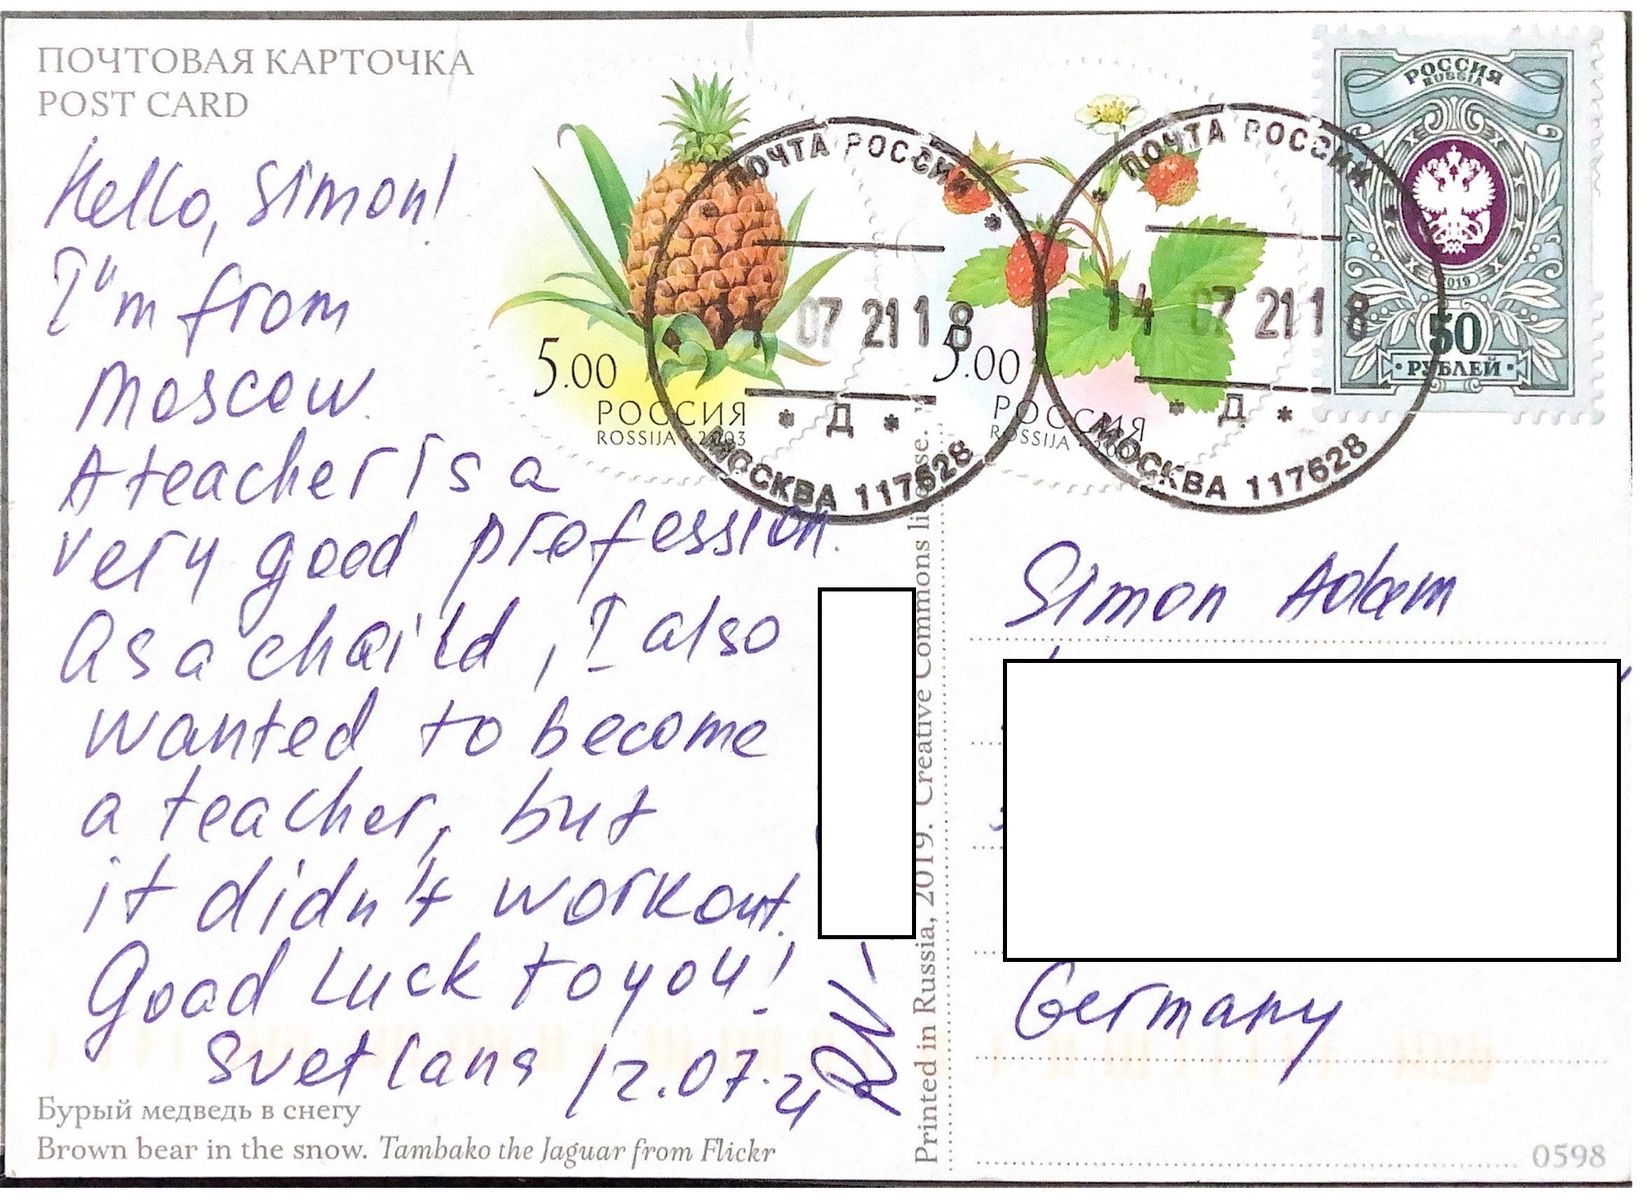 ПОЧТОВАЯ КАРТОЧКА
POST CARD
Hello, Simon!
I"m from
Moscow.
A teacher is a
very good profession.
As a chaild, I also
wanted to become
a teacher, but
it didn't workout.
Good Luck to you!
Svetlana 12.07.21
RN-
Бурый медведь в снегу
Brown bear in the snow. Tambako the Jaguar from Flickr
Printed in Russia, 2019. Creative Commons
5.00
РОССИЯ
ROSSIJA 2003
5.00
РОССИЯ
ROSSIJA
РОССИЯ
RUSSIA
2019
50
РУБЛЕЙ
ПОЧТА РОССИИ
14 07 21 18
* Д *
МОСКВА 117628
ПОЧТА РОССИИ
14 07 21 18
* Д *
МОСКВА 117628
Simon Adam
Germany
0598